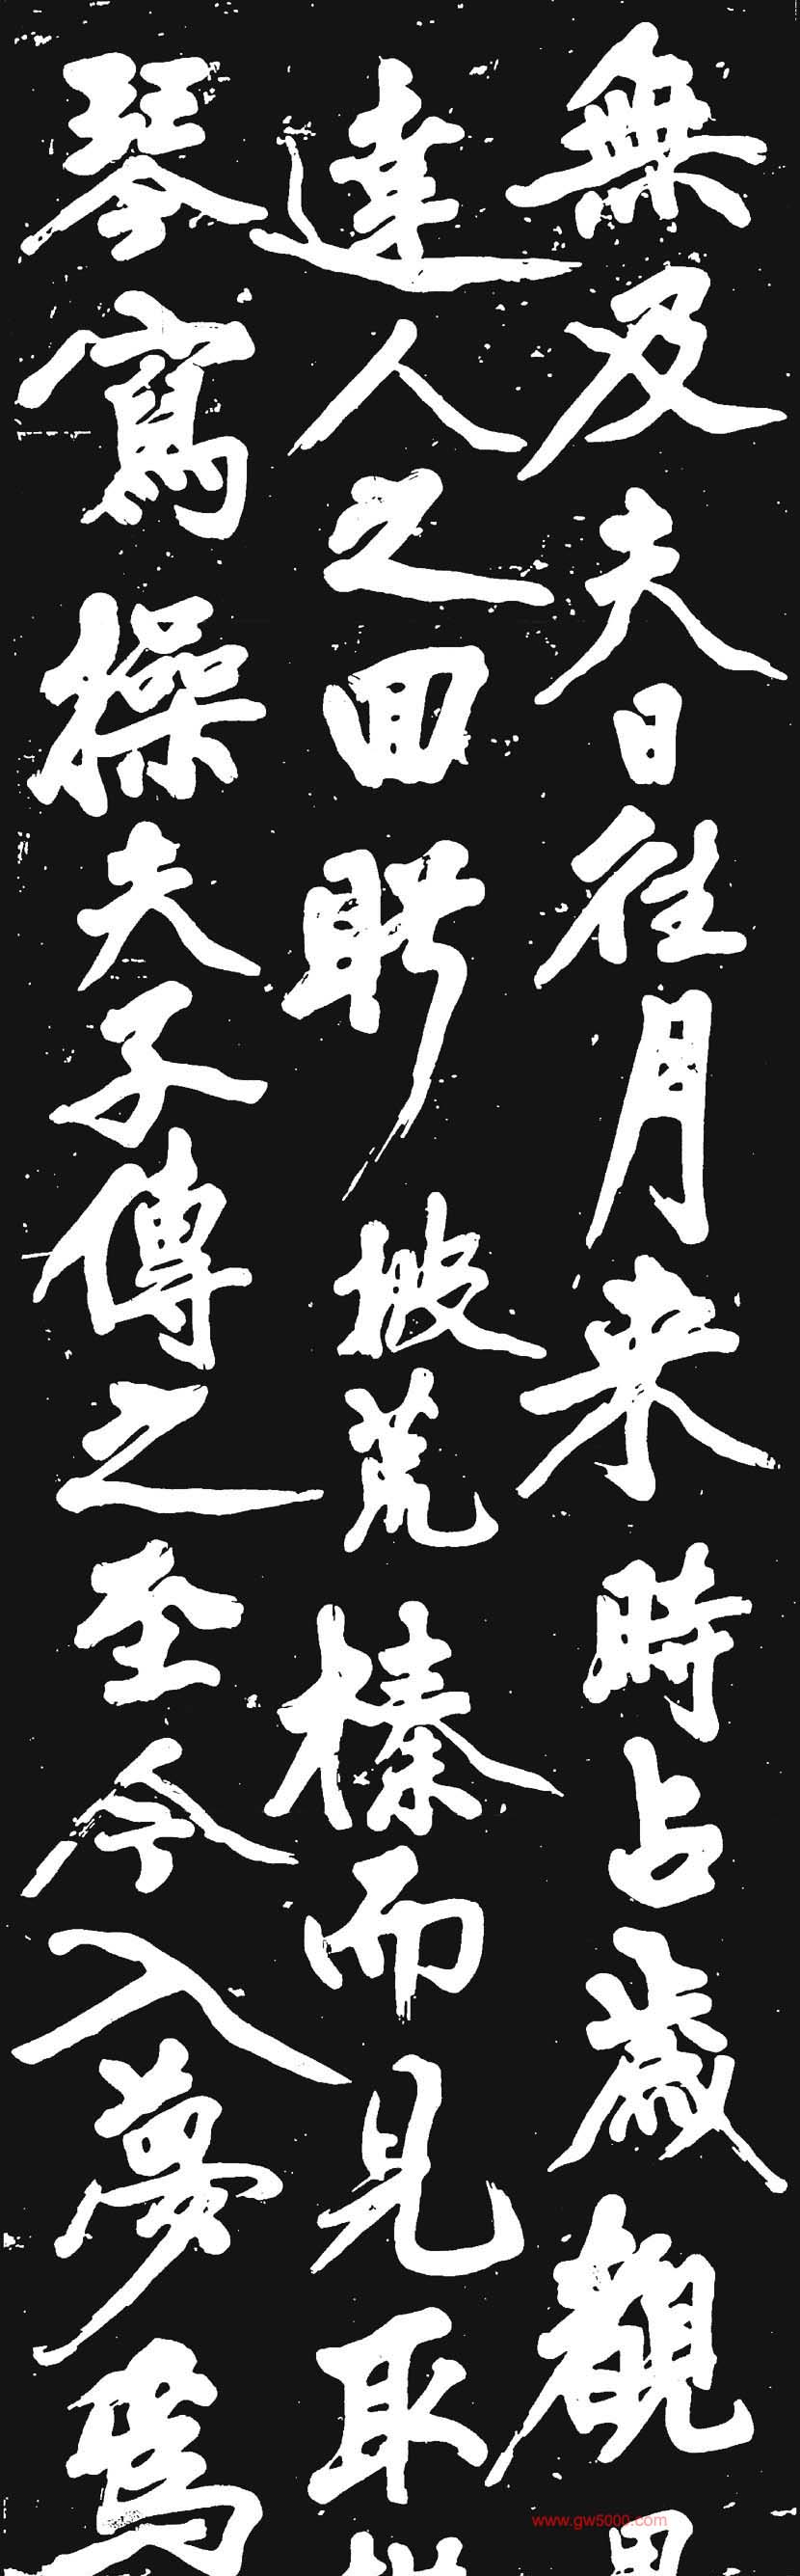 無及夫日往月来時占歳觀
達人之回眄披荒榛而見取
琴寫操夫子傳之至今入夢爲
www.gw5000.com